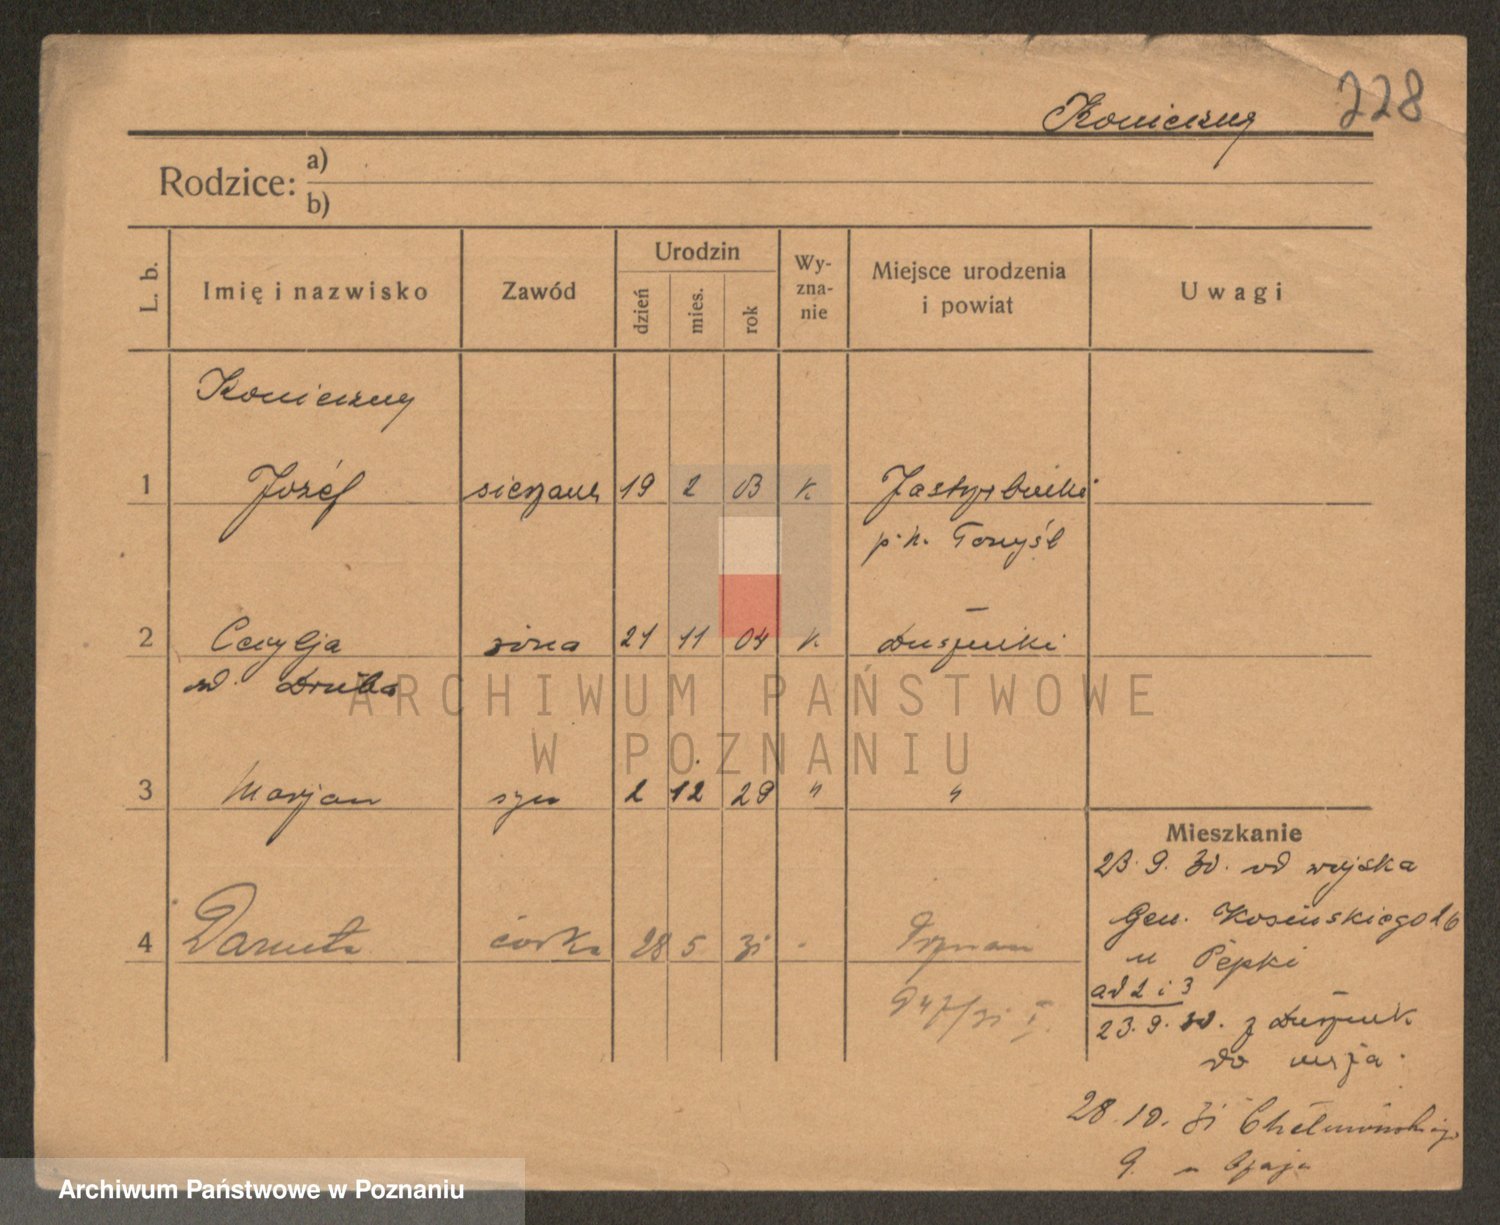 228
Konieczny
Rodzice: a)
b)
L. b. Imię i nazwisko Zawód Urodzin dzień mies. rok Wy-zna-nie Miejsce urodzenia i powiat Uwagi
Konieczny
1 Józef 19 2 03 k Jastrzębniki
p. n. Tomyśl
2 Cecylja żona 21 11 04 k Duszniki
ur. Druba
ARCHIWUM PAŃSTWOWE
W POZNANIU
3 Marjan syn 2 12 29 " "
Mieszkanie
23. 9. 30. od wojska
Gen. Kosińskiego 26
u Pepki
4 Danuta córka 28 5 31 - Poznań
947/31 I.
ad 2 i 3
23. 9. 30. z Dusznik
do męża.
28. 10. 31 Chełmońskiego
9. u
Archiwum Państwowe w Poznaniu